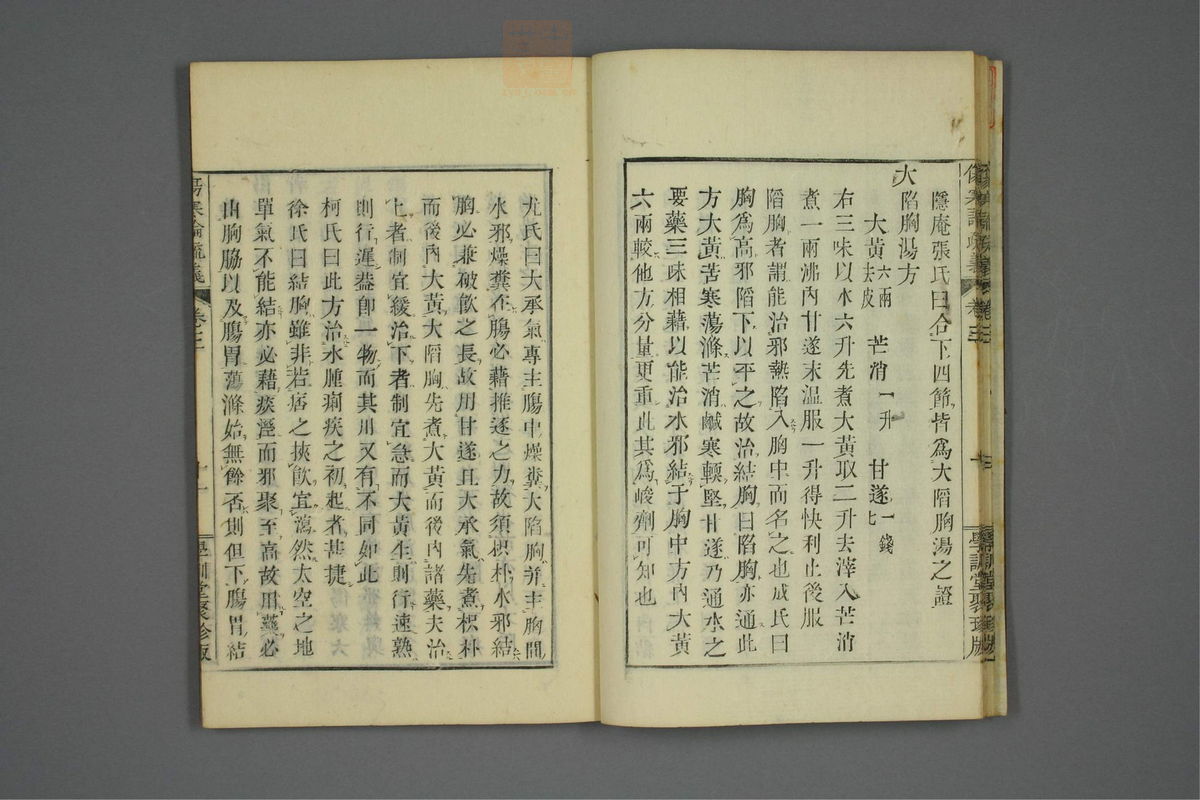 隱庵張氏曰合下四節皆爲大陷胸湯之證
大陷胸湯方
大黃六兩去皮 芒消一升 甘遂一錢匕
右三味以水六升先煮大黃取二升去滓入芒消
煮一兩沸內甘遂末温服一升得快利止後服
陷胸者謂能治邪熱陷入胸中而名之也成氏曰
胸爲高邪陷下以平之故治結胸曰陷胸亦通此
方大黃苦寒蕩滌芒消鹹寒輭堅甘遂乃通水之
要藥三味相藉以能治水邪結于胸中方內大黃
六兩較他方分量更重此其爲峻劑可知也
卷三
十
學訓堂聚珍版
尤氏曰大承氣專主腸中燥糞大陷胸幷主胸間
水邪燥糞在腸必藉推逐之力故須枳朴水邪結
胸必兼破飮之長故用甘遂且大承氣先煮枳朴
而後內大黃大陷胸先煮大黃而後內諸藥夫治
上者制宜緩治下者制宜急而大黃生則行速熟
則行遲蓋卽一物而其用又有不同如此
柯氏曰此方治水腫痢疾之初起者甚捷
徐氏曰結胸雖非若痞之挾飮宜瀉然太空之地
單氣不能結亦必藉痰溼而邪聚至高故用藥必
由胸脇以及腸胃蕩滌始無餘否則但下腸胃結